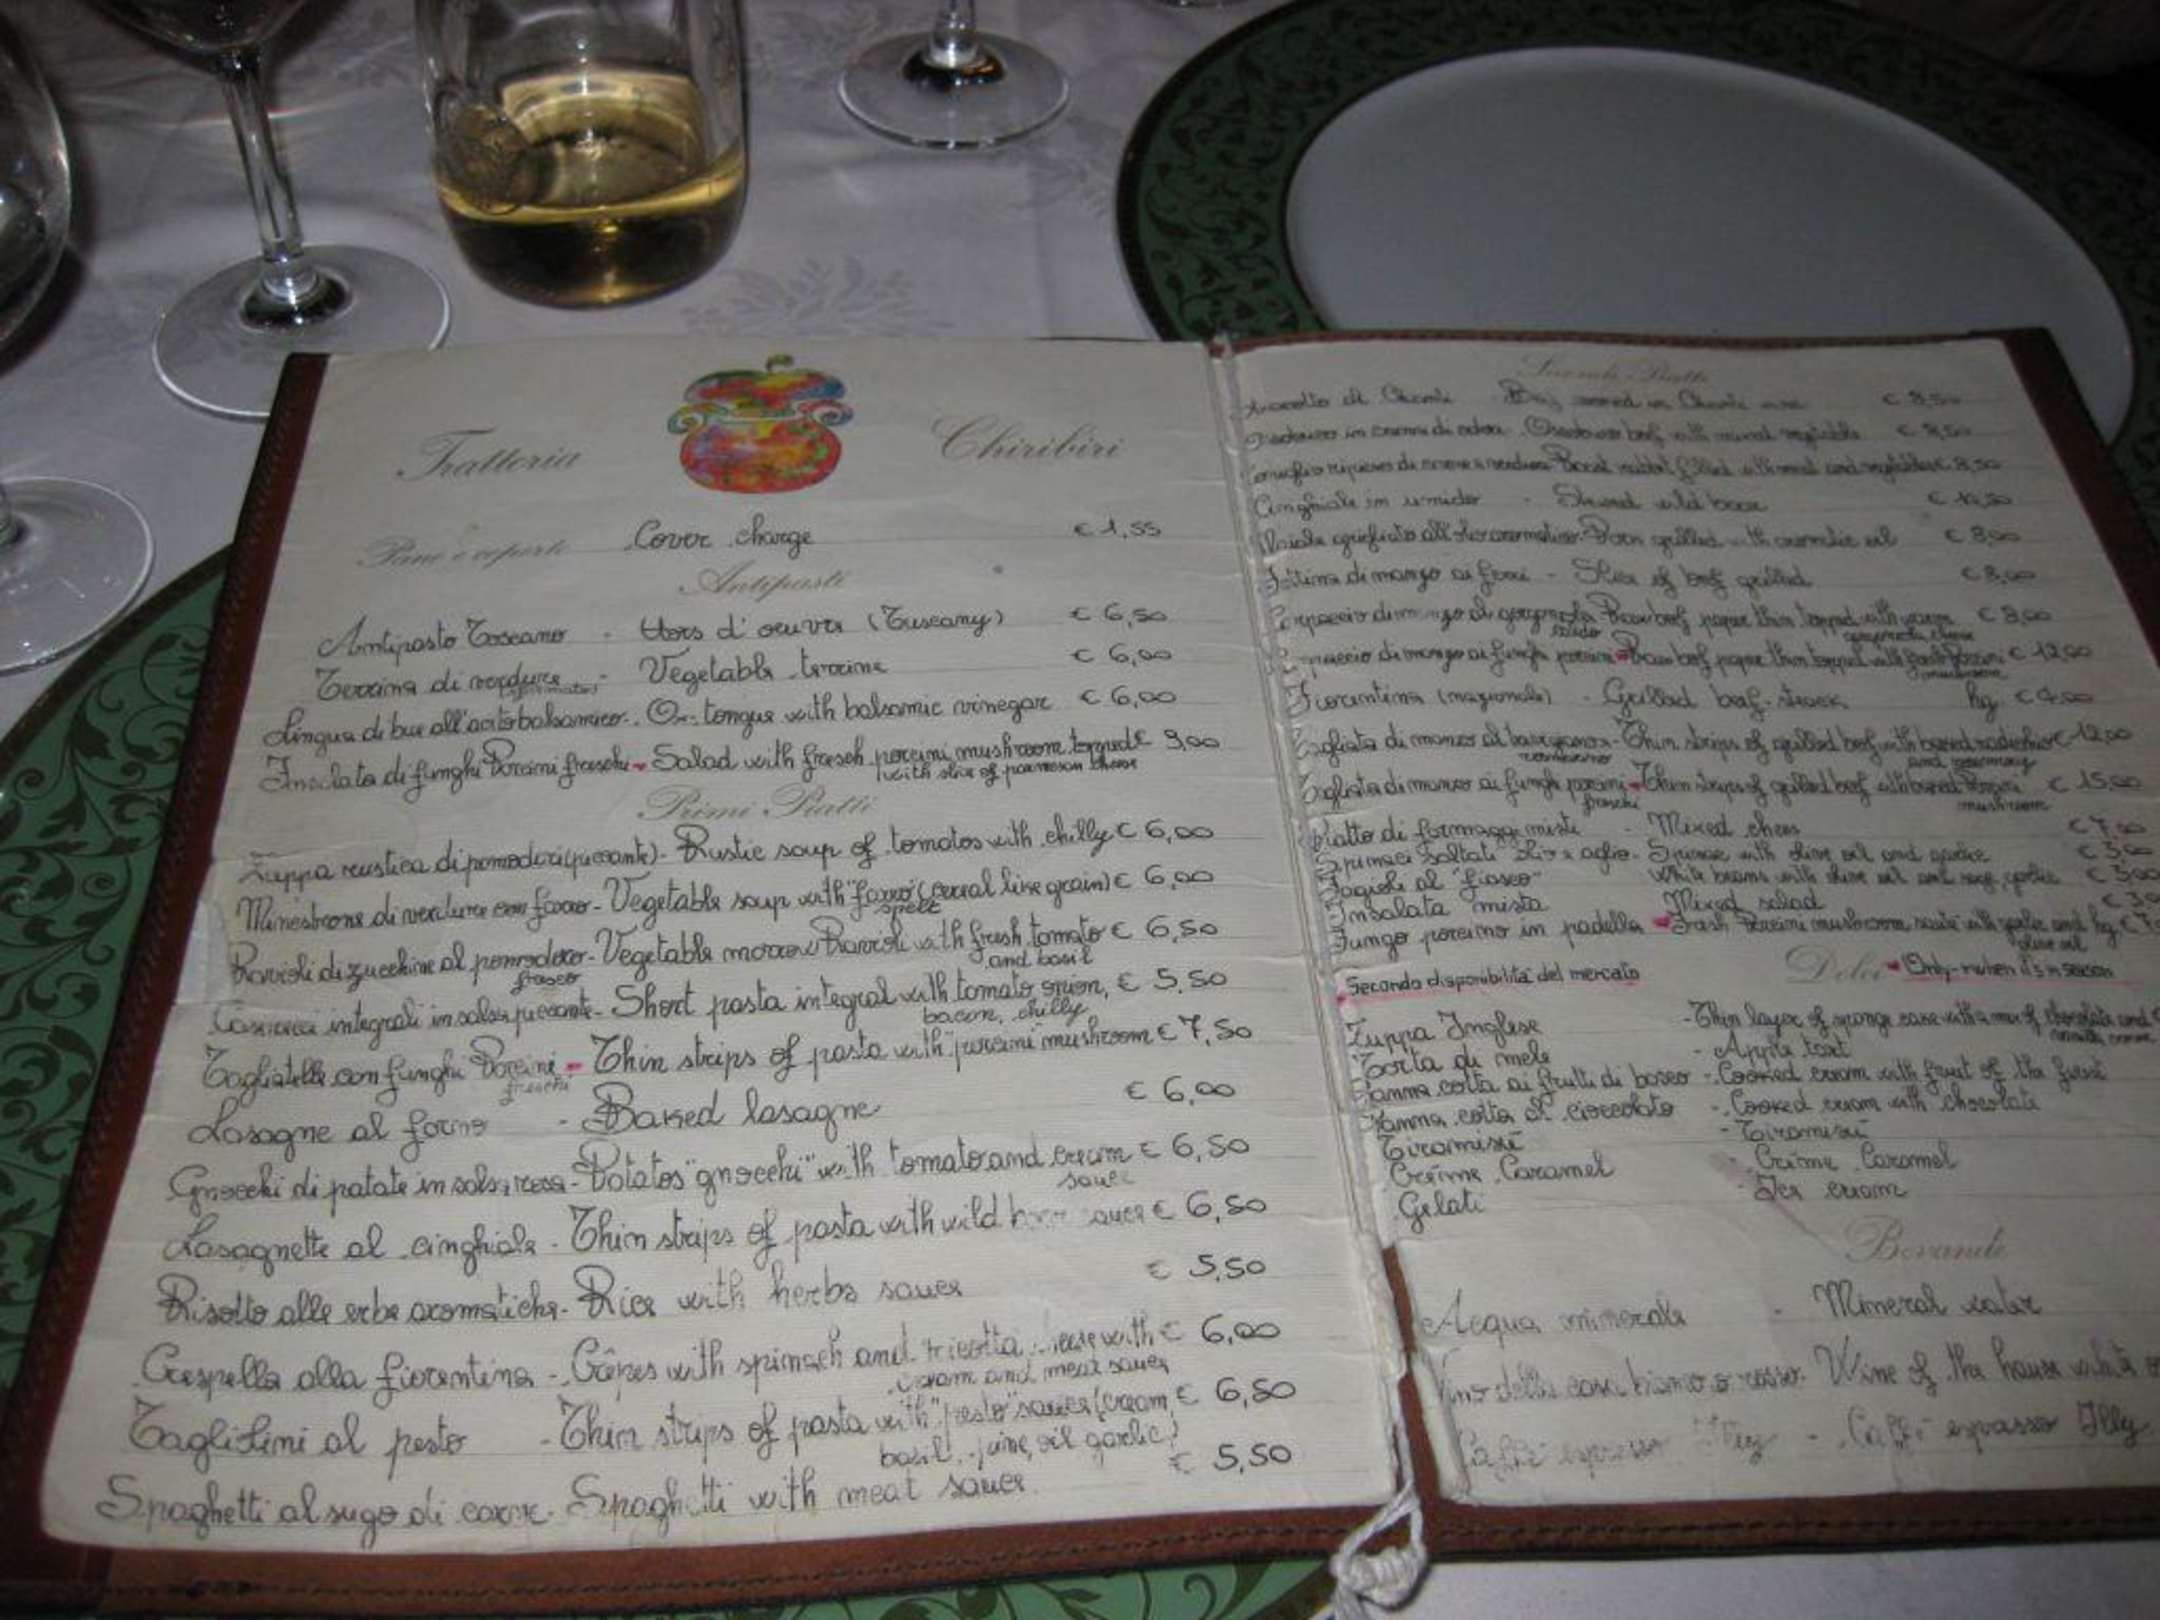 Trattoria Chiribiri
Pane e coperto Cover charge € 1,55
Antipasti
Antipasto Toscano - Hors d'oeuvre (Tuscany) € 6,50
Terrina di verdure - Vegetable terrine € 6,00
Lingua di bue all'aceto balsamico - Ox-tongue with balsamic vinegar € 6,00
Insalata di funghi Porcini freschi - Salad with fresch porcini mushroom topped € 9,00
with slice of parmesan cheese
Primi Piatti
Zuppa rustica di pomodori (piccante) - Rustic soup of tomatos with chilly € 6,00
Minestrone di verdure con farro - Vegetable soup with "farro" (cereal like grain) € 6,00
spelt
Ravioli di zucchine al pomodoro - Vegetable morrow Ravioli with fresh tomato € 6,50
fresco and basil
integrali in salsa piccante - Short pasta integral with tomato onion, € 5,50
bacon, chilly
Tagliatelle con funghi Porcini - Thin strips of pasta with "porcini" mushroom € 7,50
freschi
Lasagne al forno - Baked lasagne € 6,00
Gnocchi di patate in salsa rosa - Potatos "gnocchi" with tomato and cream € 6,50
sauce
Lasagnette al cinghiale - Thin strips of pasta with wild boar sauce € 6,50
Risotto alle erbe aromatiche - Rice with herbs sauce € 5,50
Crespelle alla fiorentina - Crêpes with spinach and ricotta cheese with € 6,00
cream and meat sauce
Tagliolini al pesto - Thin strips of pasta with "pesto" sauce (cream, € 6,50
basil, pine, oil garlic)
Spaghetti al sugo di carne - Spaghetti with meat sauce € 5,50
Secondi Piatti
al Chianti € 8,50
€ 8,50
Coniglio ripieno di carne e verdure - Roast rabbit filled with meat and vegetables € 8,50
Cinghiale in umido - Stewed wild boar
Maiale grigliato all'olio aromatico - Porn grilled with aromatic oil € 8,00
Fettina di manzo ai ferri - Slice of beef grilled € 8,00
Carpaccio di manzo al gorgonzola - Raw beef paper thin topped with warm € 8,00
caldo gorgonzola cheese
Carpaccio di manzo ai funghi porcini - Raw beef paper thin topped with fresh porcini € 12,00
mushroom
Fiorentina (nazionale) - Grilled beef-steack hg. € 4,00
Tagliata di manzo al - Thin strips of grilled beef with baked radichio € 12,00
rosmarino and rosemary
Tagliata di manzo ai funghi porcini - Thin strips of grilled beef with baked Porcini € 15,00
freschi mushroom
Piatto di formaggi misti - Mixed chees
Spinaci saltati olio e aglio - Spinac with olive oil and garlic
Fagioli al "fiasco" White beans with olive oil and sage, garlic
Insalata mista Mixed salad
Fungo porcino in padella - Fresh Porcini mushroom sauté with garlic and hg.
olive oil
Seconda disponibilità del mercato Dolci - Only when it's in season
Zuppa Inglese - Thin layer of sponge cake with a mix of chocolate and
Torta di mele - Apple tart
Panna cotta ai frutti di bosco - Cooked cream with fruit of the forest
Panna cotta al cioccolato - Cooked cream with chocolate
Tiramisù - Tiramisù
Crème Caramel - Crème Caramel
Gelati - Ice cream
Bevande
Acqua minerale - Mineral water
Vino della casa bianco o rosso - Wine of the house white or
Caffè espresso Illy - Caffè espresso Illy